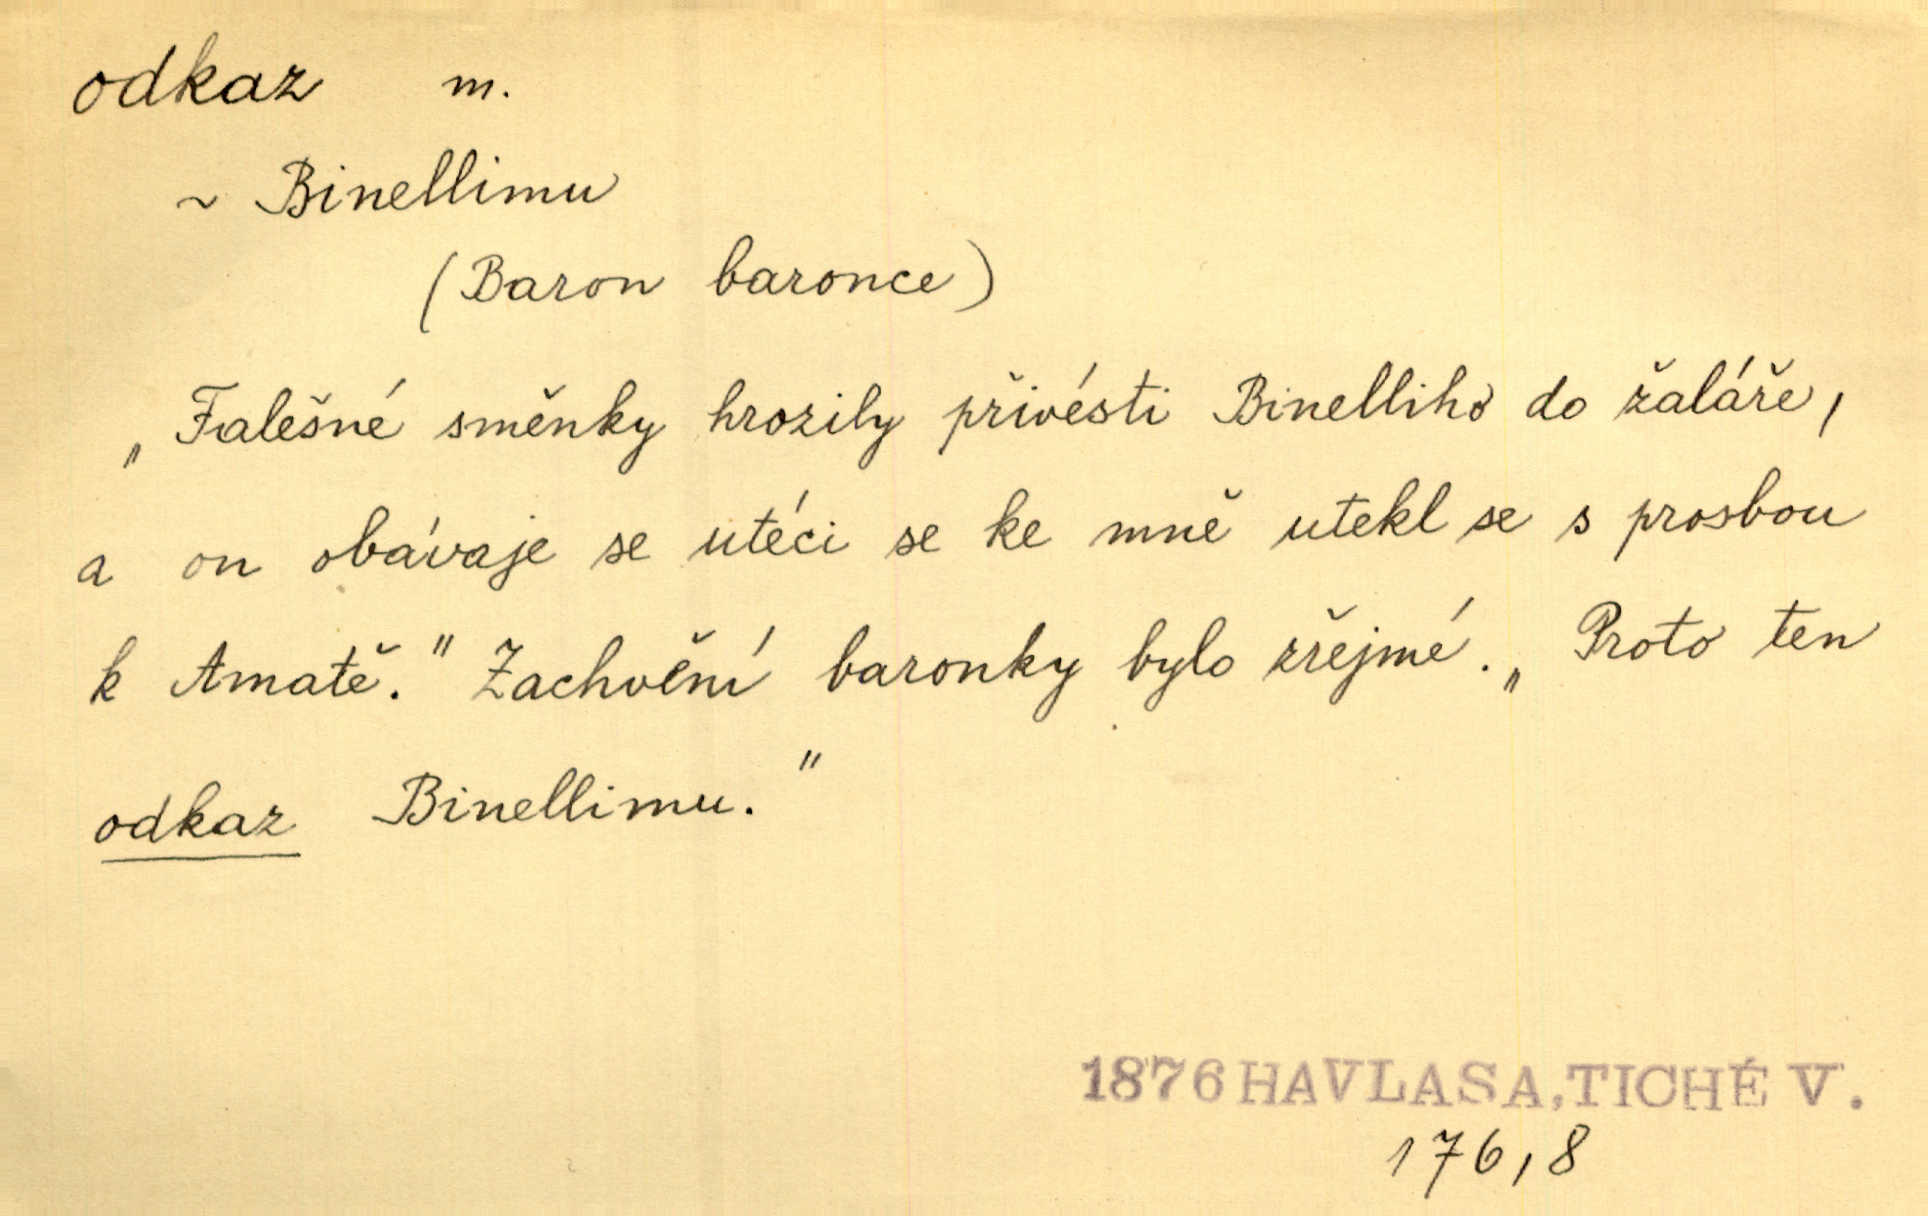 odkaz m.
~ Binellimu
(Baron baronce)
„Falešné směnky hrozily přivésti Binelliho do žaláře,
a on obávaje se utéci se ke mně utekl se s prosbou
k Amatě." Zachvění baronky bylo zřejmé. „Proto ten
odkaz Binellimu."
1876 HAVLASA, TICHÉ V.
176,8